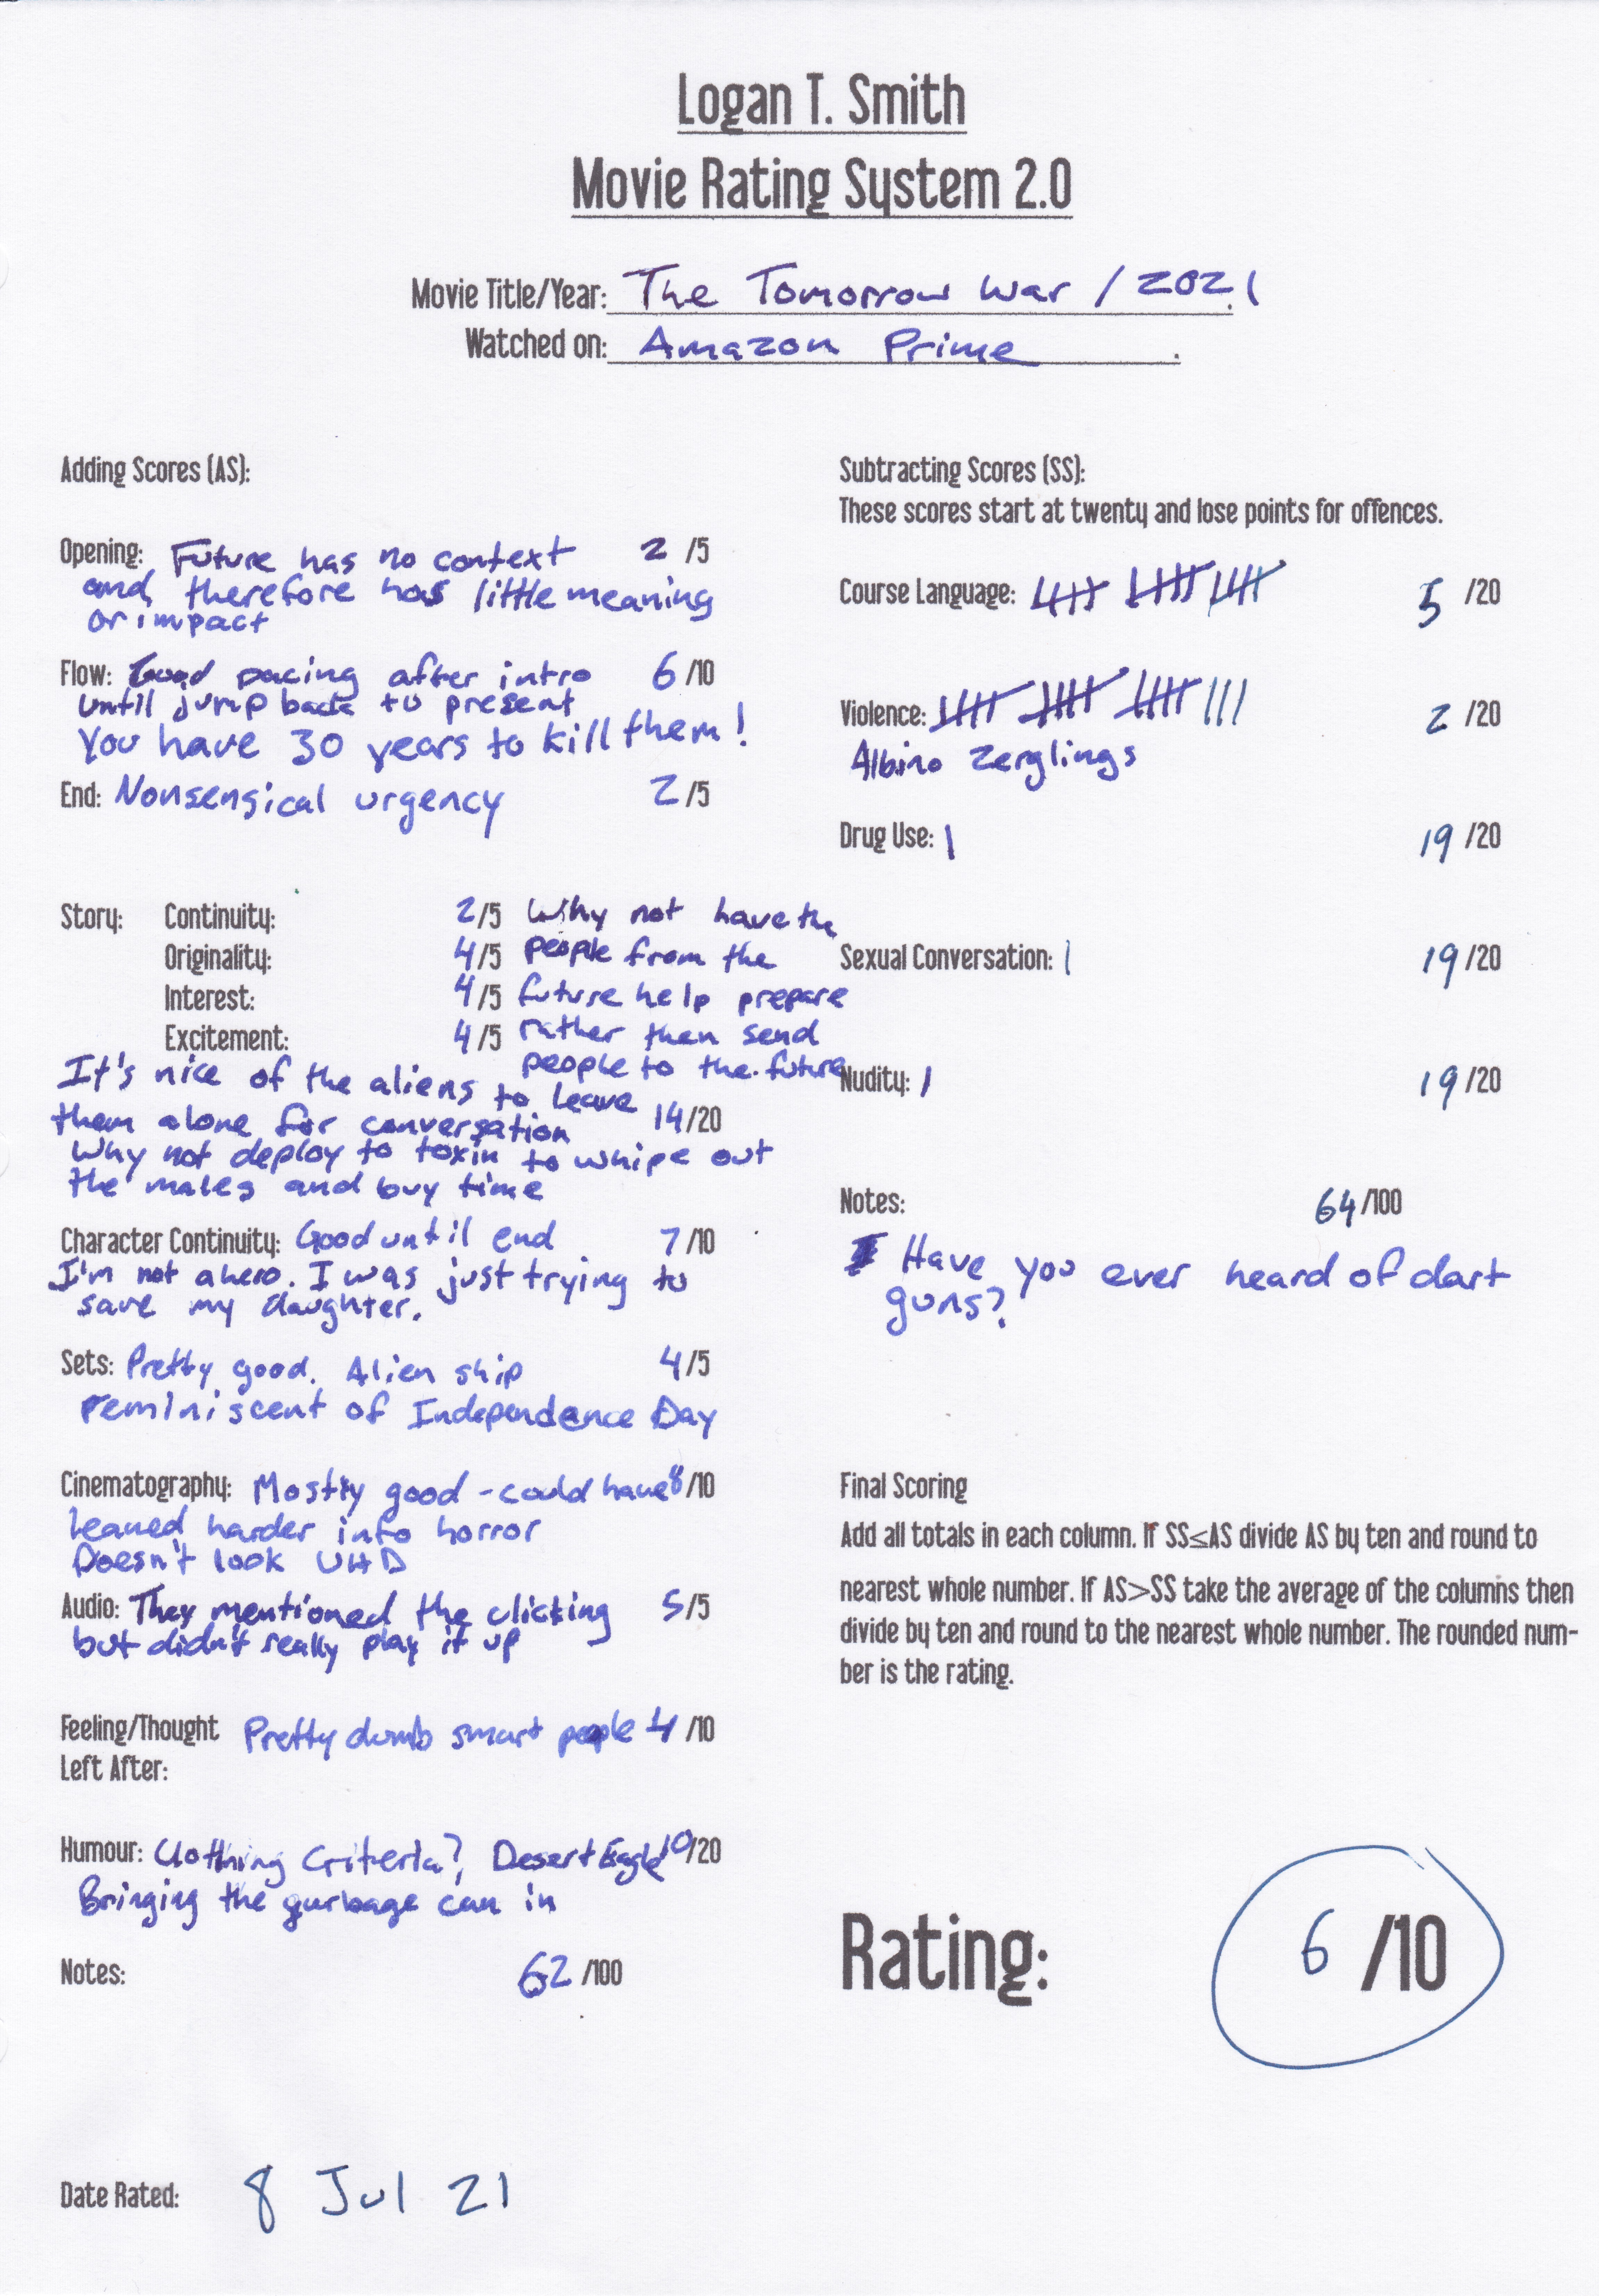 Logan T. Smith
Movie Rating System 2.0
Movie Title/Year: The Tomorrow War / 2021
Watched on: Amazon Prime
Adding Scores (AS):
Opening: Future has no context 2 /5
and therefore has little meaning
or impact
Flow: Good pacing after intro 6 /10
until jump back to present
You have 30 years to kill them!
End: Nonsensical urgency 2 /5
Story: Continuity: 2 /5 Why not have the
Originality: 4 /5 people from the
Interest: 4 /5 future help prepare
Excitement: 4 /5 rather then send
people to the future
It's nice of the aliens to leave
them alone for conversation 14 /20
Why not deploy to toxin to whipe out
the males and buy time
Character Continuity: Good until end 7 /10
I'm not a hero. I was just trying to
save my daughter.
Sets: Pretty good. Alien ship 4 /5
reminiscent of Independence Day
Cinematography: Mostly good - could have 8 /10
leaned harder into horror
Doesn't look UHD
Audio: They mentioned the clicking 5 /5
but didn't really play it up
Feeling/Thought Pretty dumb smart people 4 /10
Left After:
Humour: Clothing Criteria?, Desert Eagle 10 /20
Bringing the gurbage can in
Notes: 62 /100
Date Rated: 8 Jul 21
Subtracting Scores (SS):
These scores start at twenty and lose points for offences.
Course Language: 5 /20
Violence: 2 /20
Albino Zerglings
Drug Use: 1 19 /20
Sexual Conversation: 1 19 /20
Nudity: 1 19 /20
Notes: 64 /100
Have you ever heard of dart
guns?
Final Scoring
Add all totals in each column. If SS≤AS divide AS by ten and round to
nearest whole number. If AS>SS take the average of the columns then
divide by ten and round to the nearest whole number. The rounded num-
ber is the rating.
Rating: 6 /10